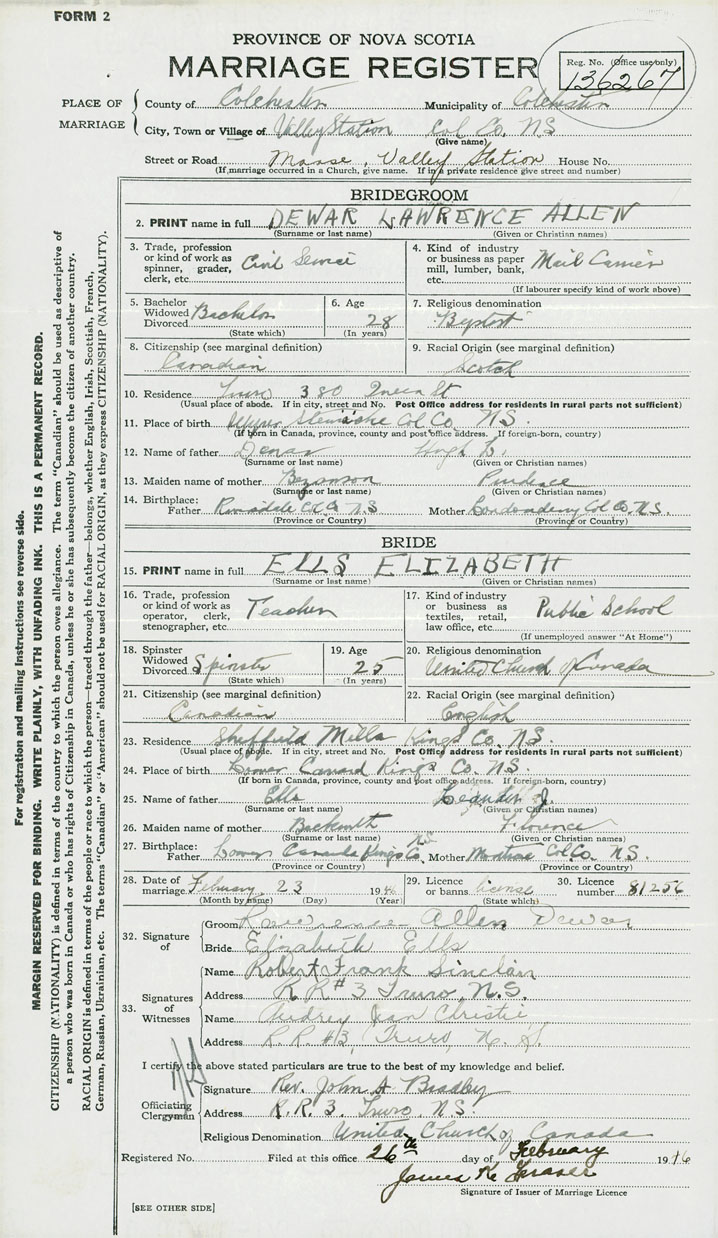 FORM 2
PROVINCE OF NOVA SCOTIA
MARRIAGE REGISTER
Reg. No. (Office use only)
136267
PLACE OF MARRIAGE
County of Colchester Municipality of Colchester
City, Town or Village of Valley Station Col Co, NS
(Give name)
Street or Road Manse, Valley Station House No.
(If marriage occurred in a Church, give name. If in a private residence give street and number)
BRIDEGROOM
2. PRINT name in full DEWAR LAWRENCE ALLEN
(Surname or last name) (Given or Christian names)
3. Trade, profession or kind of work as spinner, grader, clerk, etc. Civil Service
4. Kind of industry or business as paper mill, lumber, bank, etc. Mail Carrier
(If labourer specify kind of work above)
5. Bachelor Widowed Divorced Bachelor
(State which)
6. Age 28
(In years)
7. Religious denomination
Baptist
8. Citizenship (see marginal definition)
Canadian
9. Racial Origin (see marginal definition)
Scotch
10. Residence Truro 380 Queen St
(Usual place of abode. If in city, street and No. Post Office address for residents in rural parts not sufficient)
11. Place of birth Upper Stewiacke Col Co. NS.
(If born in Canada, province, county and post office address. If foreign-born, country)
12. Name of father Dewar Hugh
(Surname or last name) (Given or Christian names)
13. Maiden name of mother Bezanson
(Surname or last name) (Given or Christian names)
14. Birthplace:
Father Riversdale Col Co N.S Mother Londonderry Col Co. N.S.
(Province or Country) (Province or Country)
BRIDE
15. PRINT name in full ELLS ELIZABETH
(Surname or last name) (Given or Christian names)
16. Trade, profession or kind of work as operator, clerk, stenographer, etc. Teacher
17. Kind of industry or business as textiles, retail, law office, etc. Public School
(If unemployed answer "At Home")
18. Spinster Widowed Divorced Spinster
(State which)
19. Age 25
(In years)
20. Religious denomination
United Church of Canada
21. Citizenship (see marginal definition)
Canadian
22. Racial Origin (see marginal definition)
English
23. Residence Sheffield Mills Kings Co. NS.
(Usual place of abode. If in city, street and No. Post Office address for residents in rural parts not sufficient)
24. Place of birth Lower Canard Kings Co. NS.
(If born in Canada, province, county and post office address. If foreign-born, country)
25. Name of father Ells Leander J.
(Surname or last name) (Given or Christian names)
26. Maiden name of mother Florence
(Surname or last name) (Given or Christian names)
27. Birthplace:
Father Lower Canard Kings Co. NS Mother Col Co. N.S.
(Province or Country) (Province or Country)
28. Date of marriage February 23 1946
(Month by name) (Day) (Year)
29. Licence or banns license
(State which)
30. Licence number 81256
32. Signature of
Groom Lawrence Allen Dewar
Bride Elizabeth Ells
33. Signatures of Witnesses
Name Robert Frank Sinclair
Address R.R #3 Truro, N.S.
Name Audrey Jean Christie
Address R.R. #3, Truro, N.S.
I certify the above stated particulars are true to the best of my knowledge and belief.
Officiating Clergyman
Signature Rev. John A Bradley
Address R.R. 3. Truro. N.S.
Religious Denomination United Church of Canada
Registered No. Filed at this office 26th day of February 1946
James K. Fraser
Signature of Issuer of Marriage Licence
[SEE OTHER SIDE]
For registration and mailing instructions see reverse side.
MARGIN RESERVED FOR BINDING. WRITE PLAINLY, WITH UNFADING INK. THIS IS A PERMANENT RECORD.
CITIZENSHIP (NATIONALITY) is defined in terms of the country to which the person owes allegiance. The term "Canadian" should be used as descriptive of
a person who was born in Canada or who has rights of Citizenship in Canada, unless he or she has subsequently become the citizen of another country.
RACIAL ORIGIN is defined in terms of the people or race to which the person—traced through the father—belongs, whether English, Irish, Scottish, French,
German, Russian, Ukrainian, etc. The terms "Canadian" or "American" should not be used for RACIAL ORIGIN, as they express CITIZENSHIP (NATIONALITY).